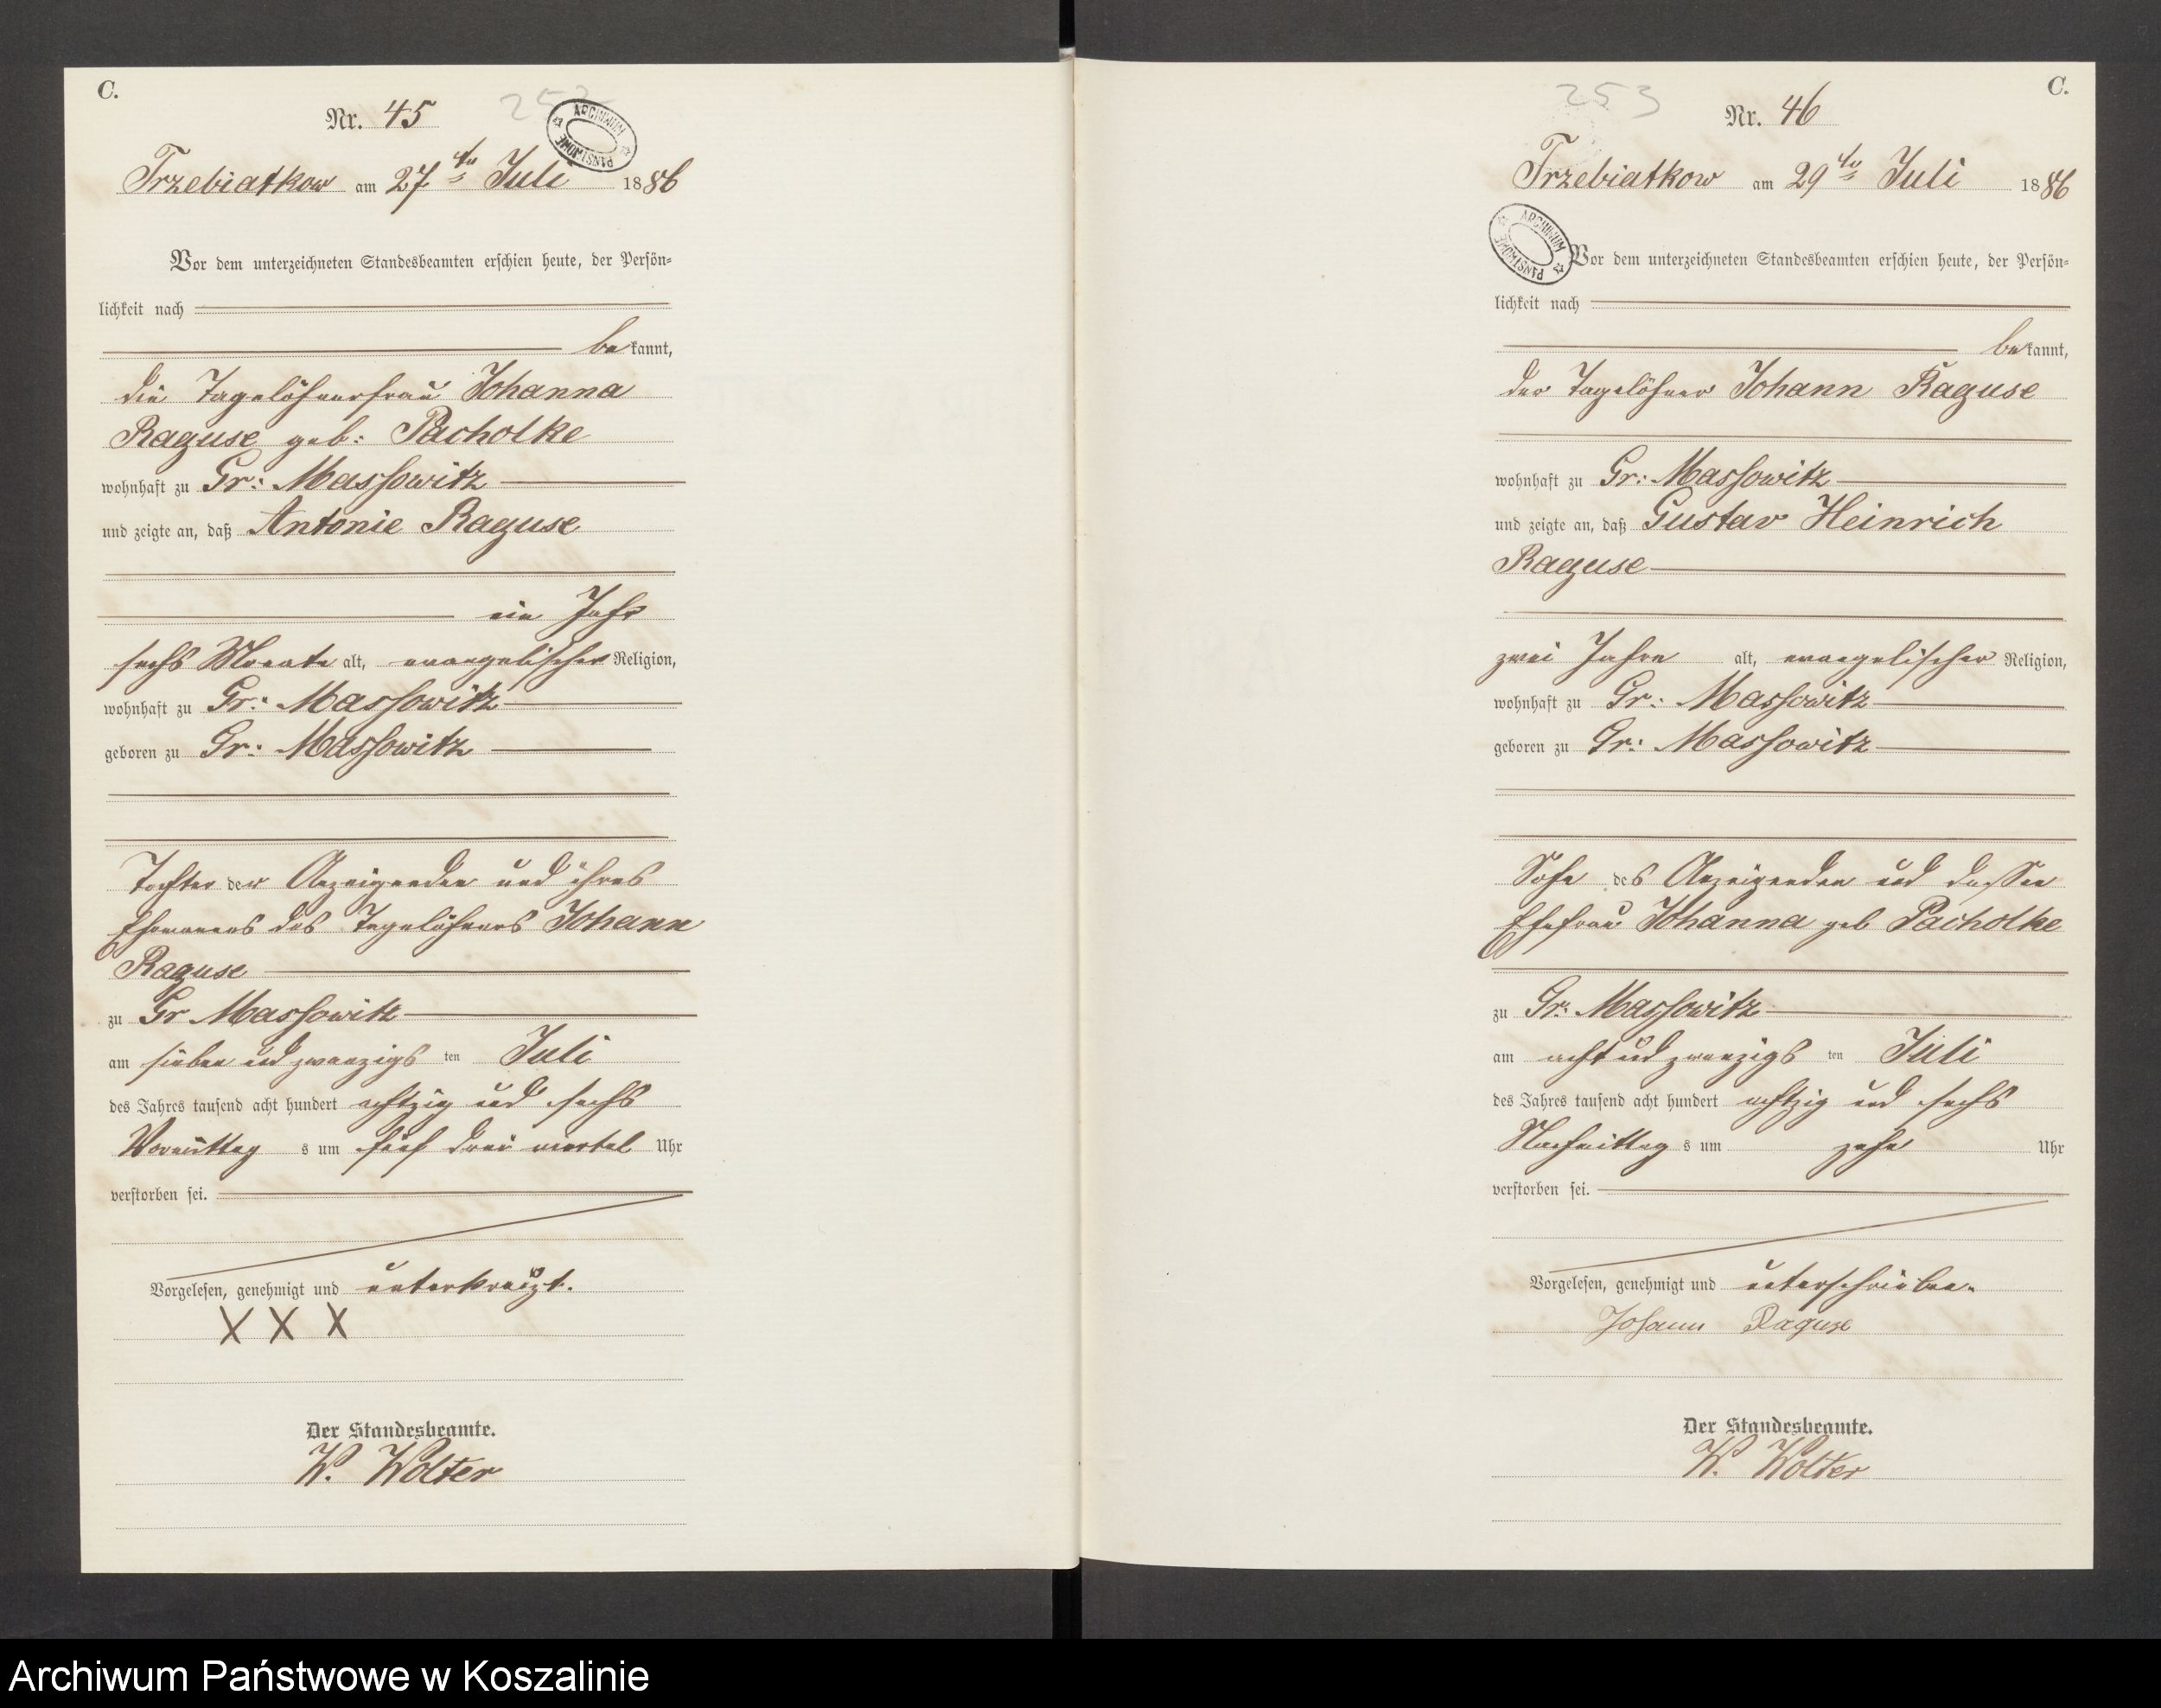 C.
Nr. 45
252
ARCHIWUM PAŃSTWOWE
Trzebiatkow am 27ten Juli 1886
Vor dem unterzeichneten Standesbeamten erschien heute, der Persön-
lichkeit nach
bekannt,
die Tagelöhnerfrau Johanna
Raguse geb: Pacholke
wohnhaft zu Gr: Massowitz
und zeigte an, daß Antonie Raguse
ein Jahr
sechs Monate alt, evangelischer Religion,
wohnhaft zu Gr: Massowitz
geboren zu Gr: Massowitz
Tochter der Anzeigenden und ihres
Ehemannes des Tagelöhners Johann
Raguse
zu Gr Massowitz
am sieben und zwanzigsten Juli
des Jahres tausend acht hundert achtzig und sechs
Vormittags um fünf drei viertel Uhr
verstorben sei.
Vorgelesen, genehmigt und unterkreuzt.
X X X
Der Standesbeamte.
W. Wolter
C.
253
Nr. 46
Trzebiatkow am 29ten Juli 1886
ARCHIWUM PAŃSTWOWE
Vor dem unterzeichneten Standesbeamten erschien heute, der Persön-
lichkeit nach
bekannt,
der Tagelöhner Johann Raguse
wohnhaft zu Gr: Massowitz
und zeigte an, daß Gustav Heinrich
Raguse
zwei Jahre alt, evangelischer Religion,
wohnhaft zu Gr: Massowitz
geboren zu Gr: Massowitz
Sohn des Anzeigenden und dessen
Ehefrau Johanna geb Pacholke
zu Gr: Massowitz
am acht und zwanzigsten Juli
des Jahres tausend acht hundert achtzig und sechs
Nachmittags um zehn Uhr
verstorben sei.
Vorgelesen, genehmigt und unterschrieben.
Johann Raguse
Der Standesbeamte.
W. Wolter
Archiwum Państwowe w Koszalinie